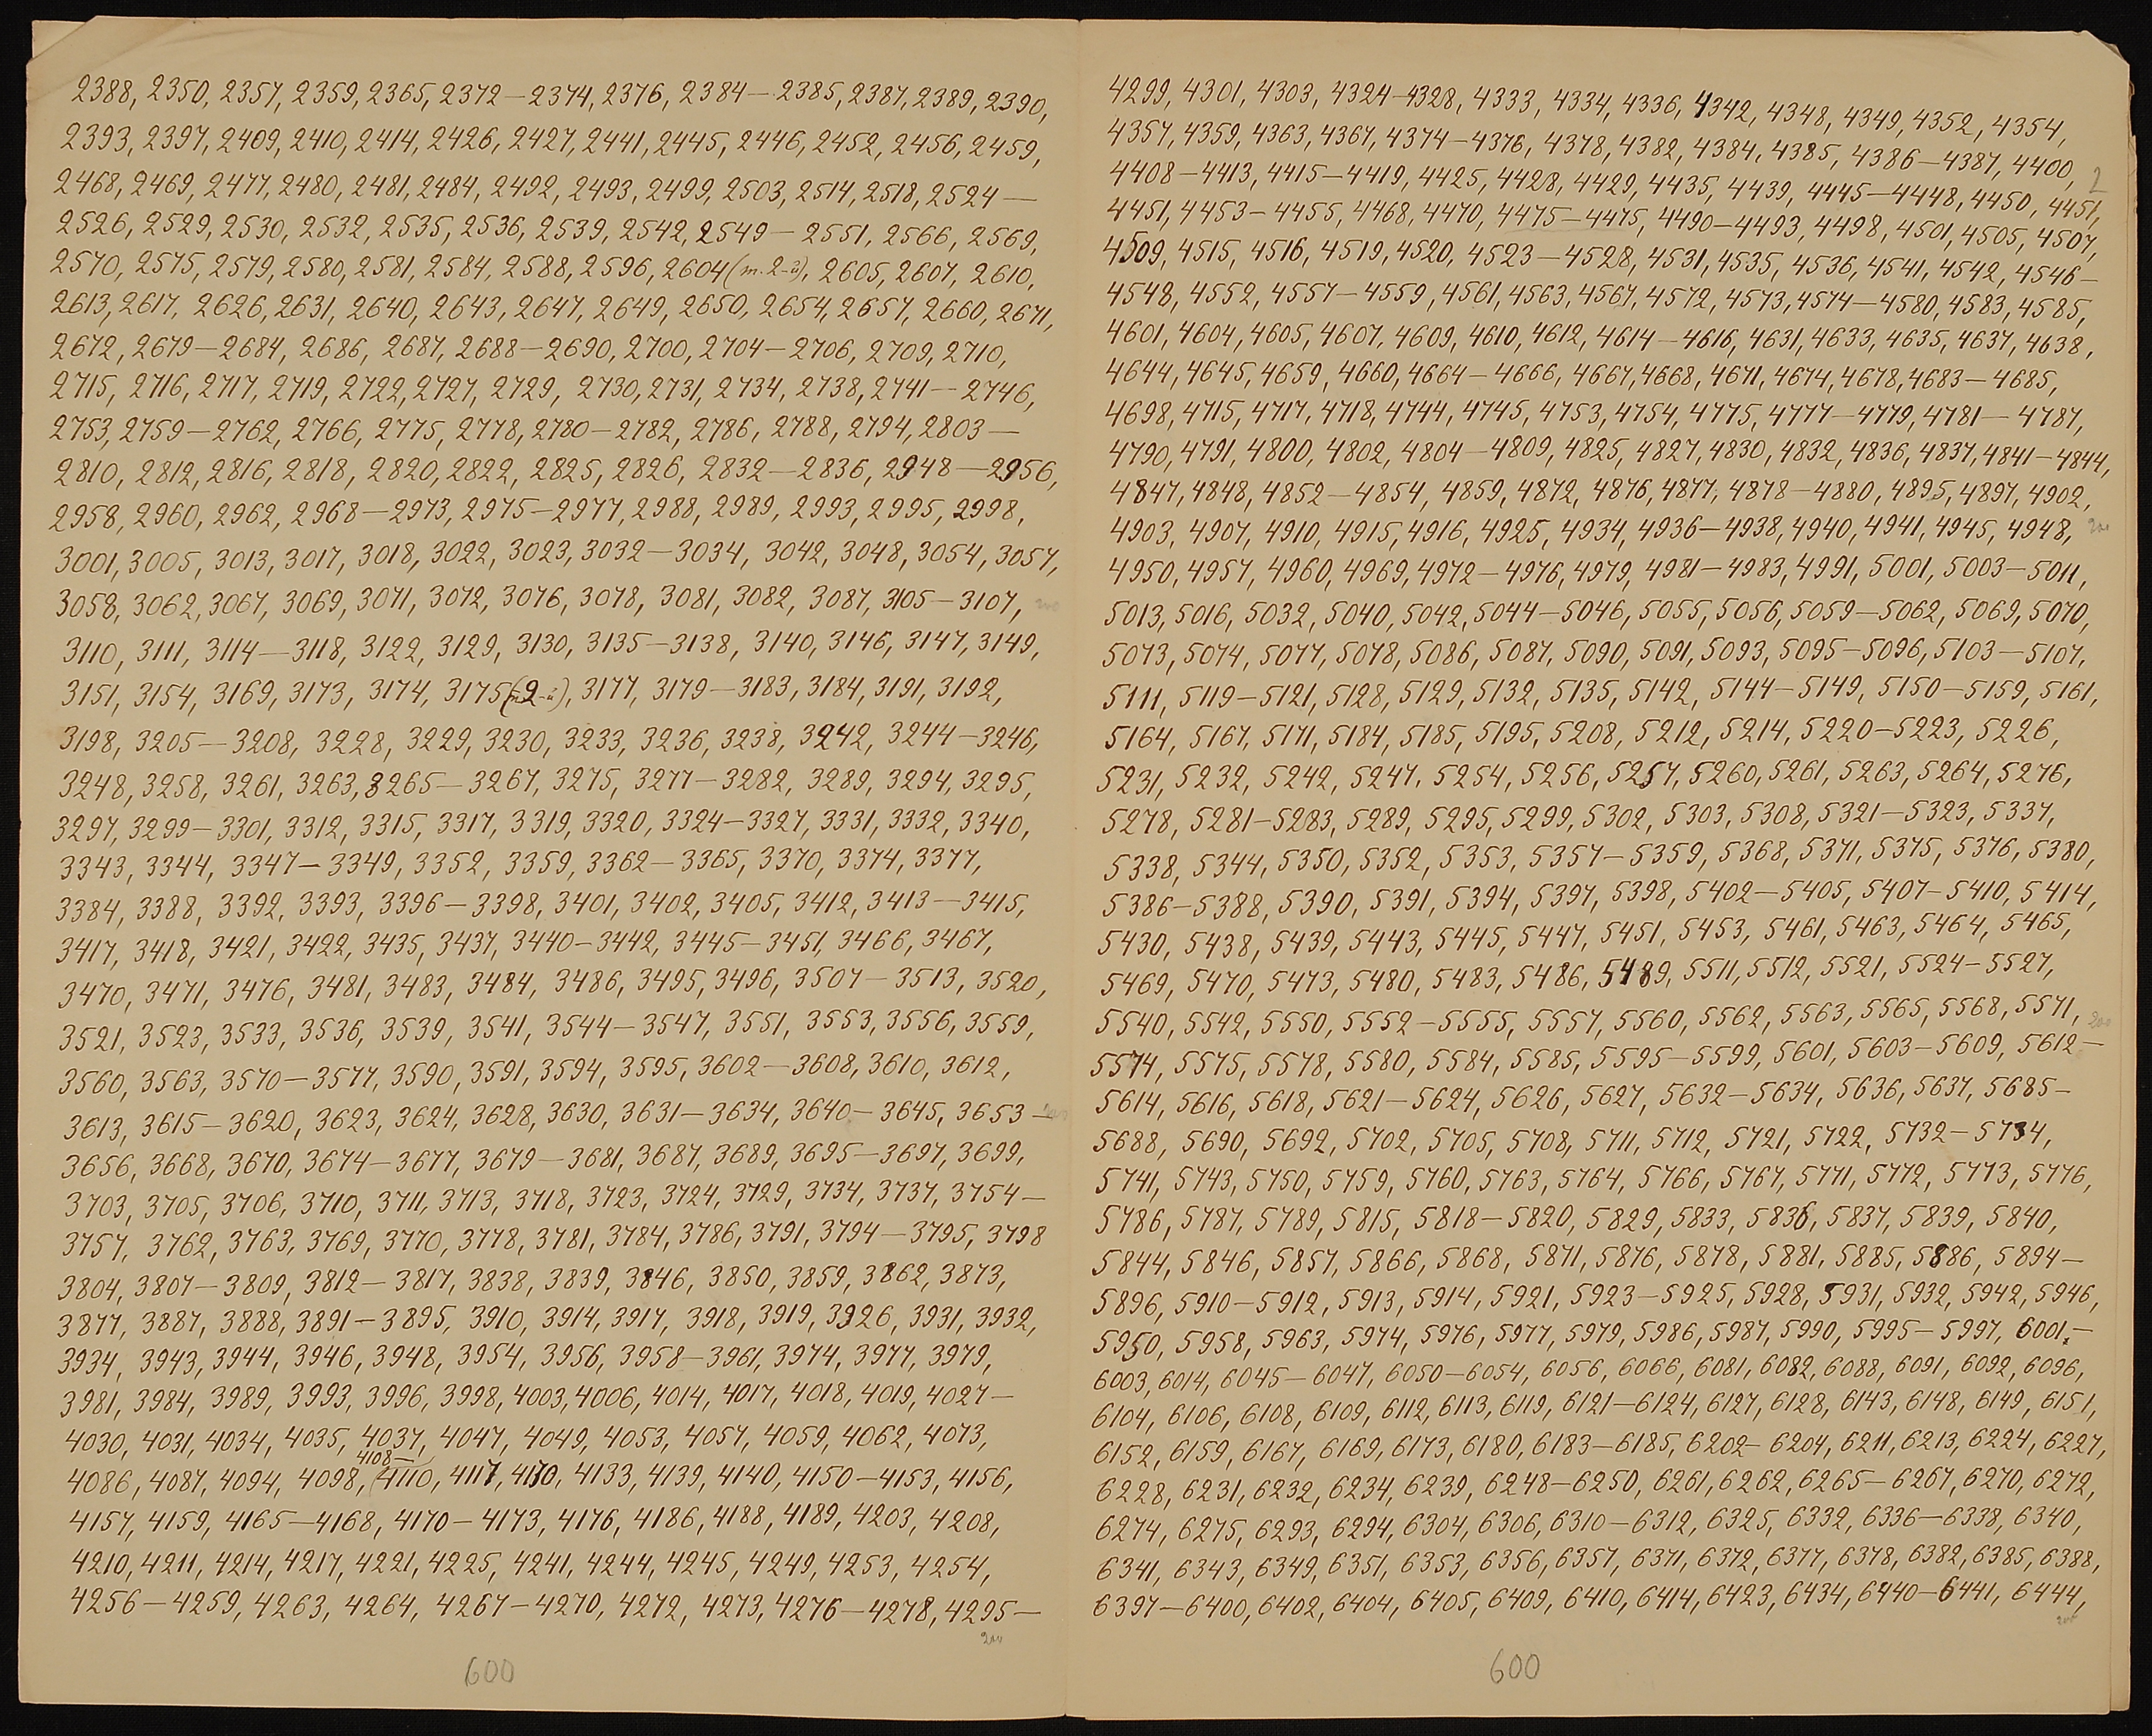 2388, 2350, 2357, 2359, 2365, 2372—2374, 2376, 2384—2385, 2387, 2389, 2390,
2393, 2397, 2409, 2410, 2414, 2426, 2427, 2441, 2445, 2446, 2452, 2456, 2459,
2468, 2469, 2477, 2480, 2481, 2484, 2492, 2493, 2499, 2503, 2514, 2518, 2524—
2526, 2529, 2530, 2532, 2535, 2536, 2539, 2542, 2549—2551, 2566, 2569,
2570, 2575, 2579, 2580, 2581, 2584, 2588, 2596, 2604 (т. 2-й), 2605, 2607, 2610,
2613, 2617, 2626, 2631, 2640, 2643, 2647, 2649, 2650, 2654, 2657, 2660, 2671,
2672, 2679—2684, 2686, 2687, 2688—2690, 2700, 2704—2706, 2709, 2710,
2715, 2716, 2717, 2719, 2722, 2727, 2729, 2730, 2731, 2734, 2738, 2741—2746,
2753, 2759—2762, 2766, 2775, 2778, 2780—2782, 2786, 2788, 2794, 2803—
2810, 2812, 2816, 2818, 2820, 2822, 2825, 2826, 2832—2836, 2948—2956,
2958, 2960, 2962, 2968—2973, 2975—2977, 2988, 2989, 2993, 2995, 2998,
3001, 3005, 3013, 3017, 3018, 3022, 3023, 3032—3034, 3042, 3048, 3054, 3057,
3058, 3062, 3067, 3069, 3071, 3072, 3076, 3078, 3081, 3082, 3087, 3105—3107,
3110, 3111, 3114—3118, 3122, 3129, 3130, 3135—3138, 3140, 3146, 3147, 3149,
3151, 3154, 3169, 3173, 3174, 3175 (2-й), 3177, 3179—3183, 3184, 3191, 3192,
3198, 3205—3208, 3228, 3229, 3230, 3233, 3236, 3238, 3242, 3244—3246,
3248, 3258, 3261, 3263, 3265—3267, 3275, 3277—3282, 3289, 3294, 3295,
3297, 3299—3301, 3312, 3315, 3317, 3319, 3320, 3324—3327, 3331, 3332, 3340,
3343, 3344, 3347—3349, 3352, 3359, 3362—3365, 3370, 3374, 3377,
3384, 3388, 3392, 3393, 3396—3398, 3401, 3402, 3405, 3412, 3413—3415,
3417, 3418, 3421, 3422, 3435, 3437, 3440—3442, 3445—3451, 3466, 3467,
3470, 3471, 3476, 3481, 3483, 3484, 3486, 3495, 3496, 3507—3513, 3520,
3521, 3523, 3533, 3536, 3539, 3541, 3544—3547, 3551, 3553, 3556, 3559,
3560, 3563, 3570—3577, 3590, 3591, 3594, 3595, 3602—3608, 3610, 3612,
3613, 3615—3620, 3623, 3624, 3628, 3630, 3631—3634, 3640—3645, 3653—
3656, 3668, 3670, 3674—3677, 3679—3681, 3687, 3689, 3695—3697, 3699,
3703, 3705, 3706, 3710, 3711, 3713, 3718, 3723, 3724, 3729, 3734, 3737, 3754—
3757, 3762, 3763, 3769, 3770, 3778, 3781, 3784, 3786, 3791, 3794—3795, 3798
3804, 3807—3809, 3812—3817, 3838, 3839, 3846, 3850, 3859, 3862, 3873,
3877, 3887, 3888, 3891—3895, 3910, 3914, 3917, 3918, 3919, 3926, 3931, 3932,
3934, 3943, 3944, 3946, 3948, 3954, 3956, 3958—3961, 3974, 3977, 3979,
3981, 3984, 3989, 3993, 3996, 3998, 4003, 4006, 4014, 4017, 4018, 4019, 4027—
4030, 4031, 4034, 4035, 4037, 4047, 4049, 4053, 4057, 4059, 4062, 4073,
4108—
4086, 4087, 4094, 4098, 4110, 4117, 4130, 4133, 4139, 4140, 4150—4153, 4156,
4157, 4159, 4165—4168, 4170—4173, 4176, 4186, 4188, 4189, 4203, 4208,
4210, 4211, 4214, 4217, 4221, 4225, 4241, 4244, 4245, 4249, 4253, 4254,
4256—4259, 4263, 4264, 4267—4270, 4272, 4273, 4276—4278, 4295—
200
600
4299, 4301, 4303, 4324—4328, 4333, 4334, 4336, 4342, 4348, 4349, 4352, 4354,
4357, 4359, 4363, 4367, 4374—4376, 4378, 4382, 4384, 4385, 4386—4387, 4400,
2
4408—4413, 4415—4419, 4425, 4428, 4429, 4435, 4439, 4445—4448, 4450, 4451,
4451, 4453—4455, 4468, 4470, 4475—4475, 4490—4493, 4498, 4501, 4505, 4507,
4509, 4515, 4516, 4519, 4520, 4523—4528, 4531, 4535, 4536, 4541, 4542, 4546—
4548, 4552, 4557—4559, 4561, 4563, 4567, 4572, 4573, 4574—4580, 4583, 4585,
4601, 4604, 4605, 4607, 4609, 4610, 4612, 4614—4616, 4631, 4633, 4635, 4637, 4638,
4644, 4645, 4659, 4660, 4664—4666, 4667, 4668, 4671, 4674, 4678, 4683—4685,
4698, 4715, 4717, 4718, 4744, 4745, 4753, 4754, 4775, 4777—4779, 4781—4787,
4790, 4791, 4800, 4802, 4804—4809, 4825, 4827, 4830, 4832, 4836, 4837, 4841—4844,
4847, 4848, 4852—4854, 4859, 4872, 4876, 4877, 4878—4880, 4895, 4897, 4902,
4903, 4907, 4910, 4915, 4916, 4925, 4934, 4936—4938, 4940, 4941, 4945, 4948,
4950, 4957, 4960, 4969, 4972—4976, 4979, 4981—4983, 4991, 5001, 5003—5011,
5013, 5016, 5032, 5040, 5042, 5044—5046, 5055, 5056, 5059—5062, 5069, 5070,
5073, 5074, 5077, 5078, 5086, 5087, 5090, 5091, 5093, 5095—5096, 5103—5107,
5111, 5119—5121, 5128, 5129, 5132, 5135, 5142, 5144—5149, 5150—5159, 5161,
5164, 5167, 5171, 5184, 5185, 5195, 5208, 5212, 5214, 5220—5223, 5226,
5231, 5232, 5242, 5247, 5254, 5256, 5257, 5260, 5261, 5263, 5264, 5276,
5278, 5281—5283, 5289, 5295, 5299, 5302, 5303, 5308, 5321—5323, 5337,
5338, 5344, 5350, 5352, 5353, 5357—5359, 5368, 5371, 5375, 5376, 5380,
5386—5388, 5390, 5391, 5394, 5397, 5398, 5402—5405, 5407—5410, 5414,
5430, 5438, 5439, 5443, 5445, 5447, 5451, 5453, 5461, 5463, 5464, 5465,
5469, 5470, 5473, 5480, 5483, 5486, 5489, 5511, 5512, 5521, 5524—5527,
5540, 5542, 5550, 5552—5555, 5557, 5560, 5562, 5563, 5565, 5568, 5571,
5574, 5575, 5578, 5580, 5584, 5585, 5595—5599, 5601, 5603—5609, 5612—
5614, 5616, 5618, 5621—5624, 5626, 5627, 5632—5634, 5636, 5637, 5685—
5688, 5690, 5692, 5702, 5705, 5708, 5711, 5712, 5721, 5722, 5732—5734,
5741, 5743, 5750, 5759, 5760, 5763, 5764, 5766, 5767, 5771, 5772, 5773, 5776,
5786, 5787, 5789, 5815, 5818—5820, 5829, 5833, 5836, 5837, 5839, 5840,
5844, 5846, 5857, 5866, 5868, 5871, 5876, 5878, 5881, 5885, 5886, 5894—
5896, 5910—5912, 5913, 5914, 5921, 5923—5925, 5928, 5931, 5932, 5942, 5946,
5950, 5958, 5963, 5974, 5976, 5977, 5979, 5986, 5987, 5990, 5995—5997, 6001.—
6003, 6014, 6045—6047, 6050—6054, 6056, 6066, 6081, 6082, 6088, 6091, 6092, 6096,
6104, 6106, 6108, 6109, 6112, 6113, 6119, 6121—6124, 6127, 6128, 6143, 6148, 6149, 6151,
6152, 6159, 6167, 6169, 6173, 6180, 6183—6185, 6202—6204, 6211, 6213, 6224, 6227,
6228, 6231, 6232, 6234, 6239, 6248—6250, 6261, 6262, 6265—6267, 6270, 6272,
6274, 6275, 6293, 6294, 6304, 6306, 6310—6312, 6325, 6332, 6336—6338, 6340,
6341, 6343, 6349, 6351, 6353, 6356, 6357, 6371, 6372, 6377, 6378, 6382, 6385, 6388,
6397—6400, 6402, 6404, 6405, 6409, 6410, 6414, 6423, 6434, 6440—6441, 6444,
200
600